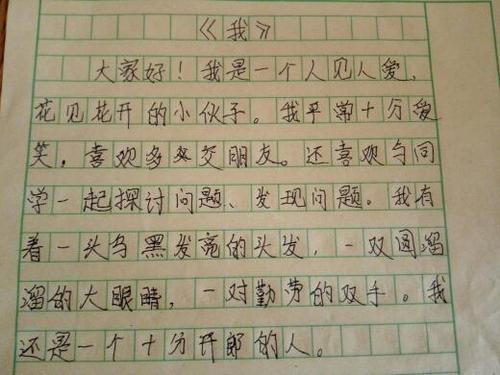 《我》
大家好！我是一个人见人爱，
花见花开的小伙子。我平常十分爱
笑，喜欢多交朋友。还喜欢与同
学一起探讨问题、发现问题。我有
着一头乌黑发亮的头发，一双圆溜
溜的大眼睛，一对勤劳的双手。我
还是一个十分开郎的人。